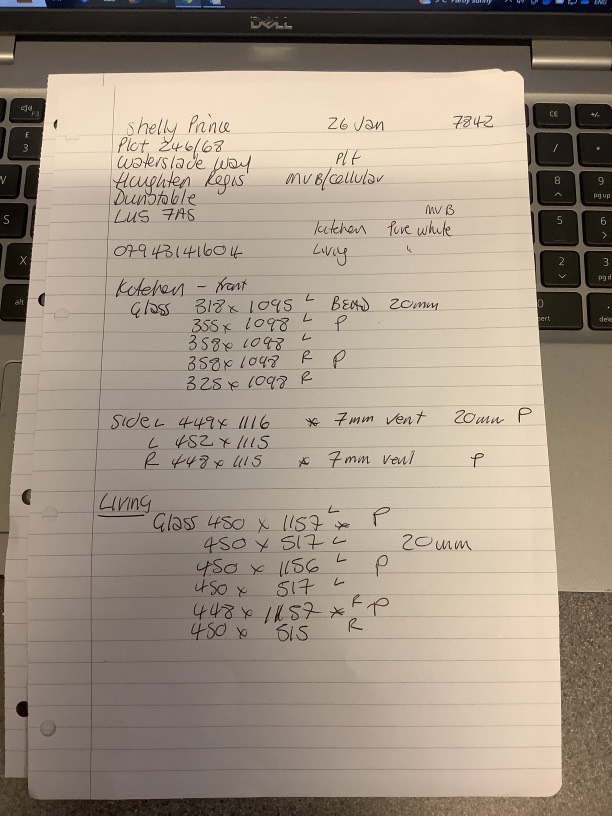 DELL
Shelly Prince 26 Jan 7842
Plot 246/68
Waterslade Way Plt
Houghten Regis MVB/cellular
Dunstable
LU5 7AS MVB
Kitchen Pure white
07943141604 Living "
Kitchen - front
Glass 318 x 1095 L BEAD 20mm
355 x 1098 L P
358 x 1098 L
358 x 1098 R P
325 x 1098 R
Side L 449 x 1116 * 7mm vent 20mm P
L 452 x 1115
R 448 x 1115 * 7mm vent P
Living
Glass 450 x 1157 L * P
450 x 517 L 20mm
450 x 1156 L P
450 x 517 L
448 x 1157 * R P
450 x 515 R